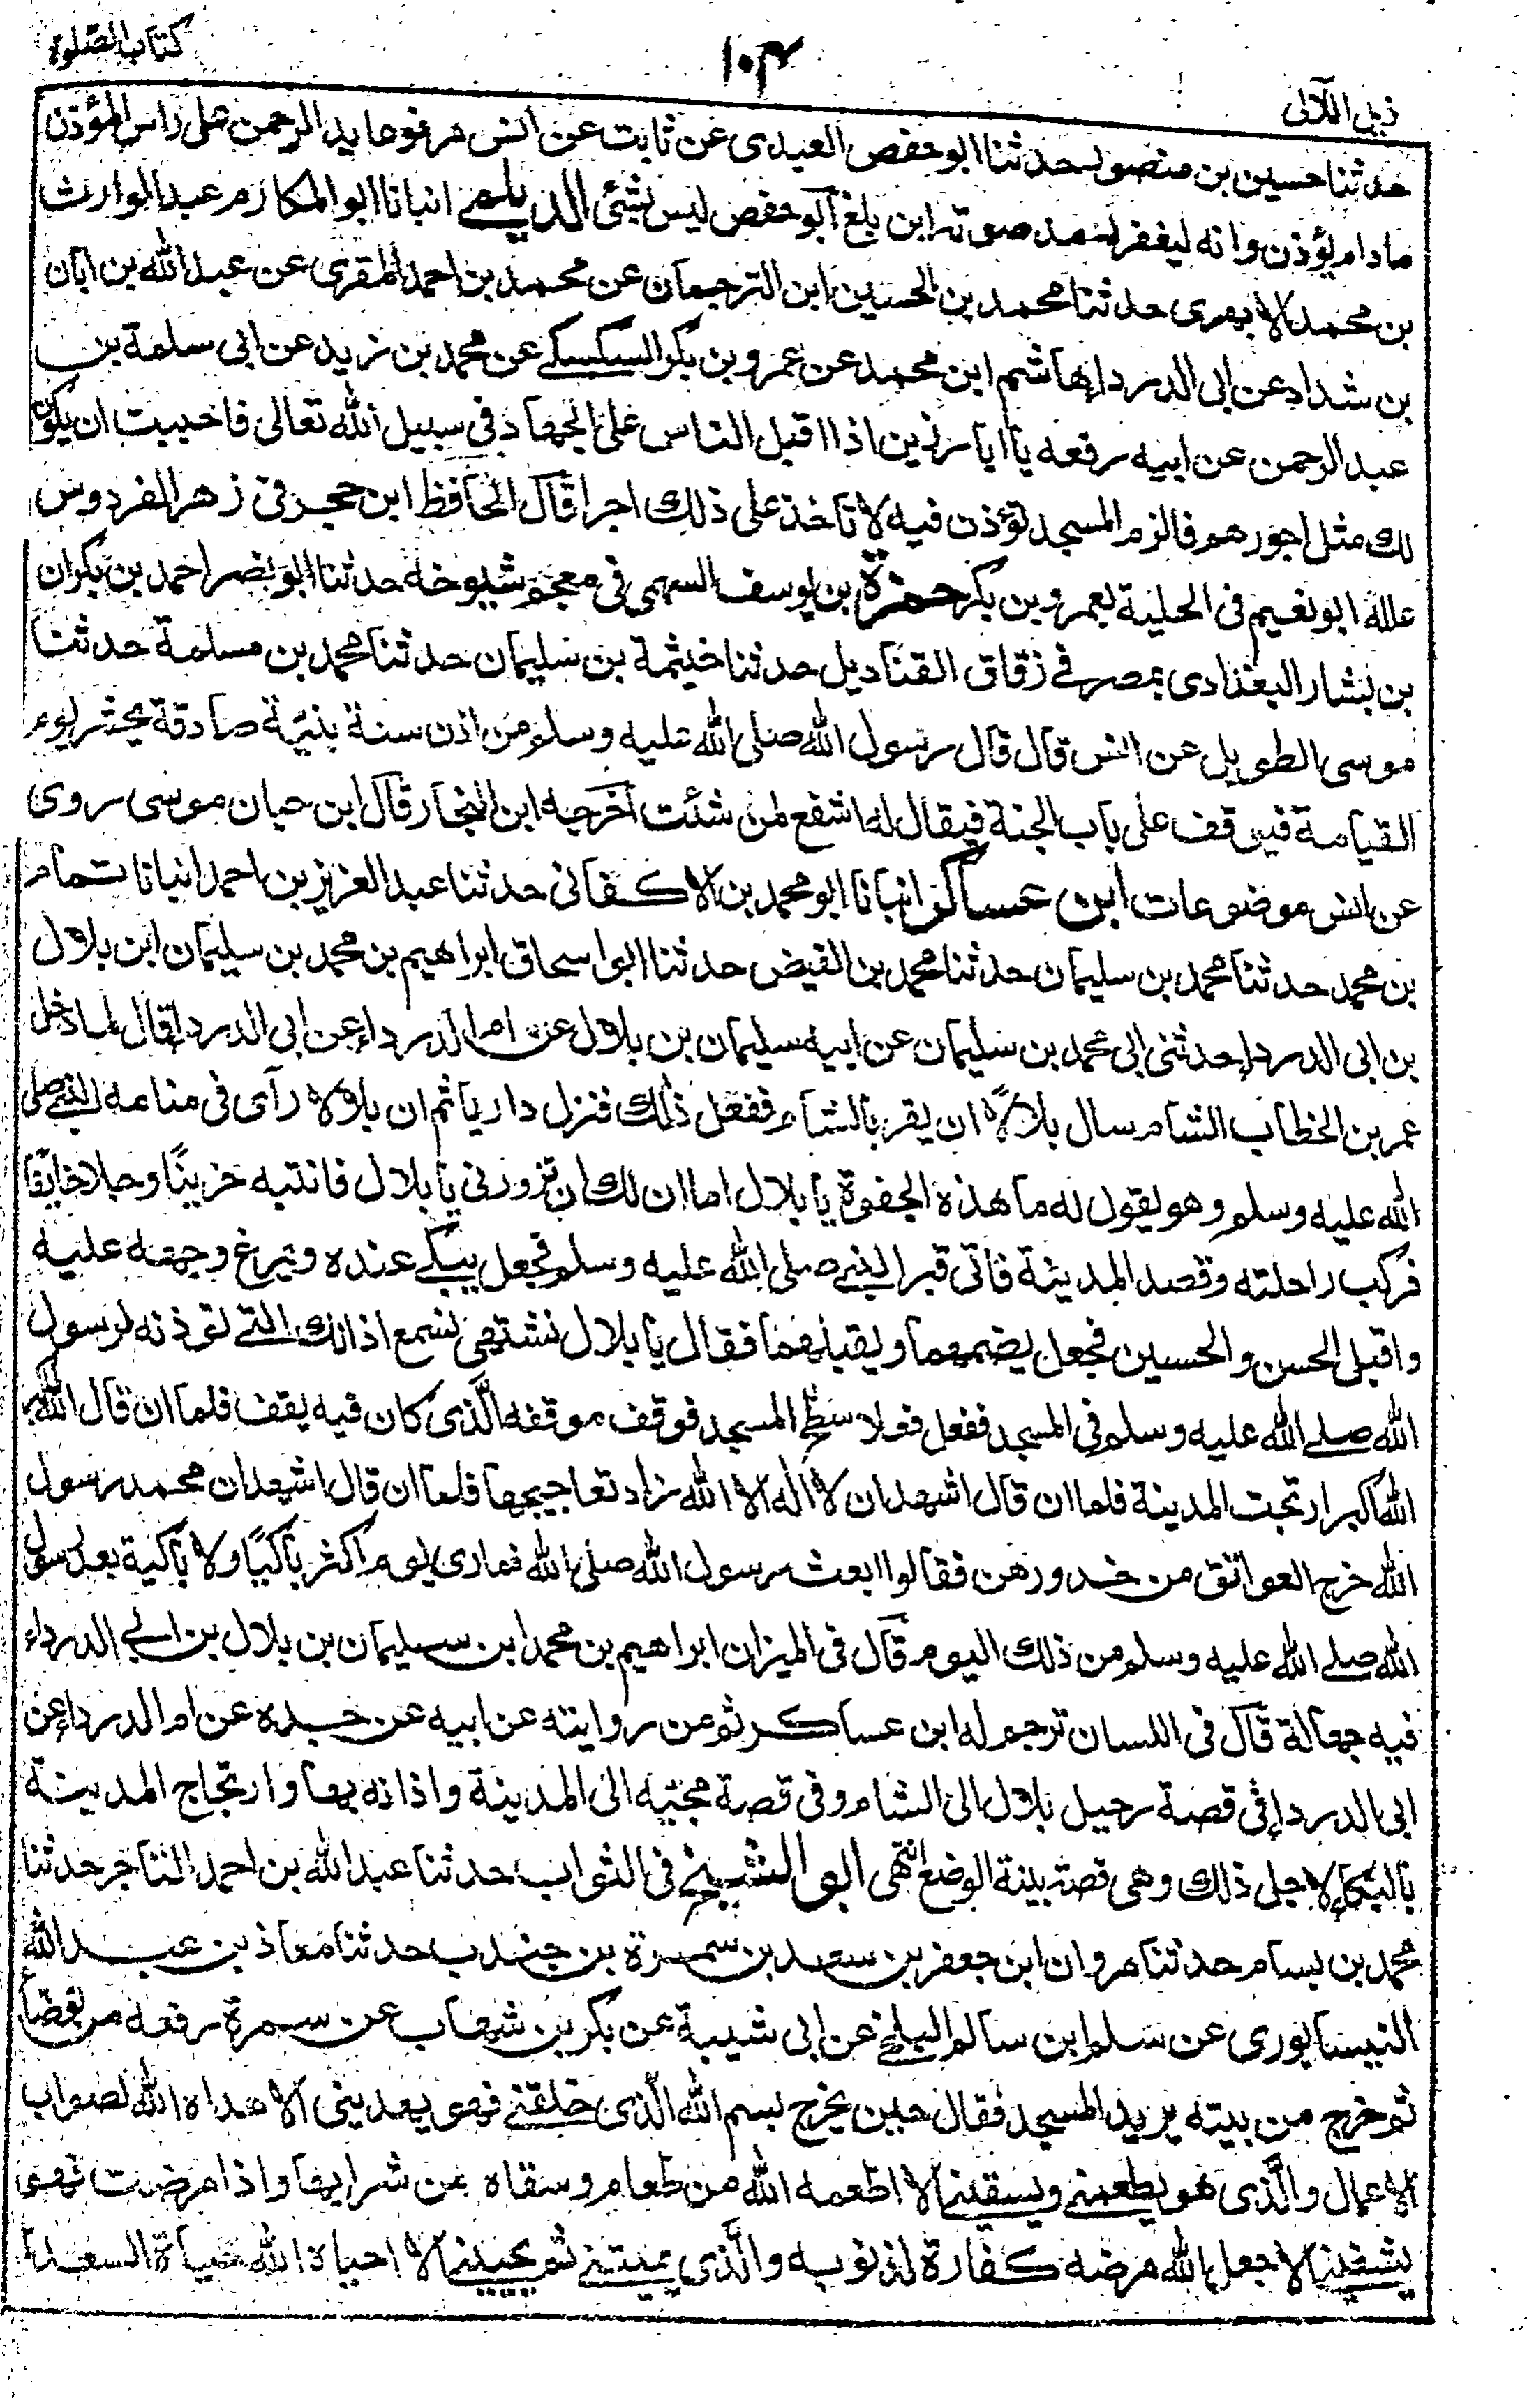 كتاب الصلوة
١٠٤
ذيل اللآلى
حدثنا حسين بن منصور حدثنا ابو حفص العبدى عن ثابت عن انس مرفوعا يد الرحمن على راس المؤذن
ما دام يؤذن وانه ليغفر له مد صوته اين بلغ ابو حفص ليس بشئ الديلمے انبانا ابو المكارم عبد الوارث
بن محمد الابهرى حدثنا محمد بن الحسين ابن الترجمان عن محمد بن احمد المقرى عن عبد الله بن ابان
بن شداد عن ابى الدرداء هاشم ابن محمد عن عمرو بن بكر السكسكے عن محمد بن زيد عن ابى سلمة بن
عبد الرحمن عن ابيه رفعه يا ابا رزين اذا اقبل الناس على الجهاد فى سبيل الله تعالى فاحببت ان يكون
لك مثل اجورهم فالزم المسجد تؤذن فيه لا تاخذ على ذلك اجرا قال الحافظ ابن حجر فى زهر الفردوس
علله ابو نعيم فى الحلية بعمرو بن بكر حمزة بن يوسف السهمى فى معجم شيوخه حدثنا ابو نصر احمد بن بكران
بن بشار البغدادى بمصر فے زقاق القناديل حدثنا خيثمة بن سليمان حدثنا محمد بن مسلمة حدثنا
موسى الطويل عن انس قال قال رسول الله صلى الله عليه وسلم من اذن سنة بنية صادقة يحشر يوم
القيامة فيوقف على باب الجنة فيقال له اشفع لمن شئت اخرجه ابن النجار قال ابن حبان موسى روى
عن انس موضوعات ابن عساكر انبانا ابو محمد بن الاكفانى حدثنا عبد العزيز بن احمد انبانا تمام
بن محمد حدثنا محمد بن سليمان حدثنا محمد بن الفيض حدثنا ابو اسحاق ابراهيم بن محمد بن سليمان ابن بلال
بن ابى الدرداء حدثنى ابى محمد بن سليمان عن ابيه سليمان بن بلال عن ام الدرداء عن ابى الدرداء قال لما دخل
عمر بن الخطاب الشام سال بلالاً ان يقر بالشام ففعل ذلك فنزل داريا ثم ان بلالا رآى فى منامه النبے صلى
الله عليه وسلم وهو يقول له ما هذه الجفوة يا بلال اما ان لك ان تزورنى يا بلال فانتبه حزينًا وجلا خائفا
فركب راحلته وقصد المدينة فاتى قبر النبے صلى الله عليه وسلم فجعل يبكے عنده ويمرغ وجهه عليه
واقبل الحسن والحسين فجعل يضمهما ويقبلهما فقال يا بلال نشتهى نسمع اذانك التے تؤذنه لرسول
الله صلے الله عليه وسلم فى المسجد ففعل فعلا سطح المسجد فوقف موقفه الَّذى كان فيه يقف فلما ان قال الله اكبر
الله اكبر ارتجت المدينة فلما ان قال اشهد ان لا اله الا الله زاد تعاجيجها فلما ان قال اشهد ان محمد رسول
الله خرج العواتق من خدورهن فقالوا ابعث رسول الله صلى الله فما رى يوم اكثر باكيًا ولا باكية بعد رسول
الله صلے الله عليه وسلم من ذلك اليوم قال فى الميزان ابراهيم بن محمد ابن سليمان بن بلال بن ابے الدرداء
فيه جهالة قال فى اللسان ترجم له ابن عساكر ثم من روايته عن ابيه عن جده عن ام الدرداء عن
ابى الدرداء فى قصة رحيل بلال الى الشام وفى قصة مجيئه الى المدينة واذانه بها وارتجاج المدينة
بالبكاء لاجل ذلك وهى قصة بينة الوضع انتهى ابو الشيخ فى الثواب حدثنا عبد الله بن احمد التاجر حدثنا
محمد بن بسام حدثنا مروان ابن جعفر بن سعد بن سمرة بن جندب حدثنا معاذ بن عبد الله
النيسابورى عن سلم ابن سالم البلخے عن ابى شيبة عن بكر بن شهاب عن سمرة رفعه من توضا
ثم خرج من بيته يريد المسجد فقال حين يخرج بسم الله الَّذى خلقنے فهو يهدينى الا هداه الله لصواب
الاعمال والَّذى هو يطعمنے ويسقينے الا اطعمه الله من طعام وسقاه من شرابها واذا مرضت فهو
يشفينے الا جعل الله مرضه كفارة لذنوبه والَّذى يميتنے ثم يحيينے الا احياه الله حياة السعداء